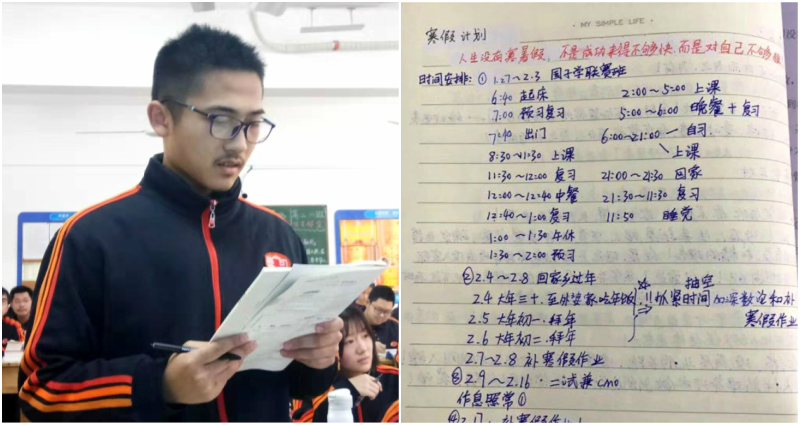 · MY SIMPLE LIFE ·
寒假 计划
人生没有寒暑假,不是成功来得不够快,而是对自己不够狠
时间安排: ① 1.27~2.3 国子学联赛班
6:40 起床 2:00~5:00 上课
7:00 预习复习 5:00~6:00 晚餐+复习
7:40 出门 6:00~21:00 自习
上课
8:30~11:30 上课
11:30~12:00 复习 21:00~21:30 回家
12:00~12:40 中餐 21:30~11:30 复习
12:40~1:00 复习 11:50 睡觉
1:00~1:30 午休
1:30~2:00 预习
② 2.4~2.8 回家乡过年 抽空
2.4 大年三十. 至外婆家吃年饭 !! 抓紧时间 加深数论和补
2.5 大年初一. 拜年 寒假作业
2.6 大年初二. 拜年
2.7~2.8 补寒假作业
③ 2.9~2.16 · 二试兼cmo
作息照常①
④ 2.17 补寒假作业